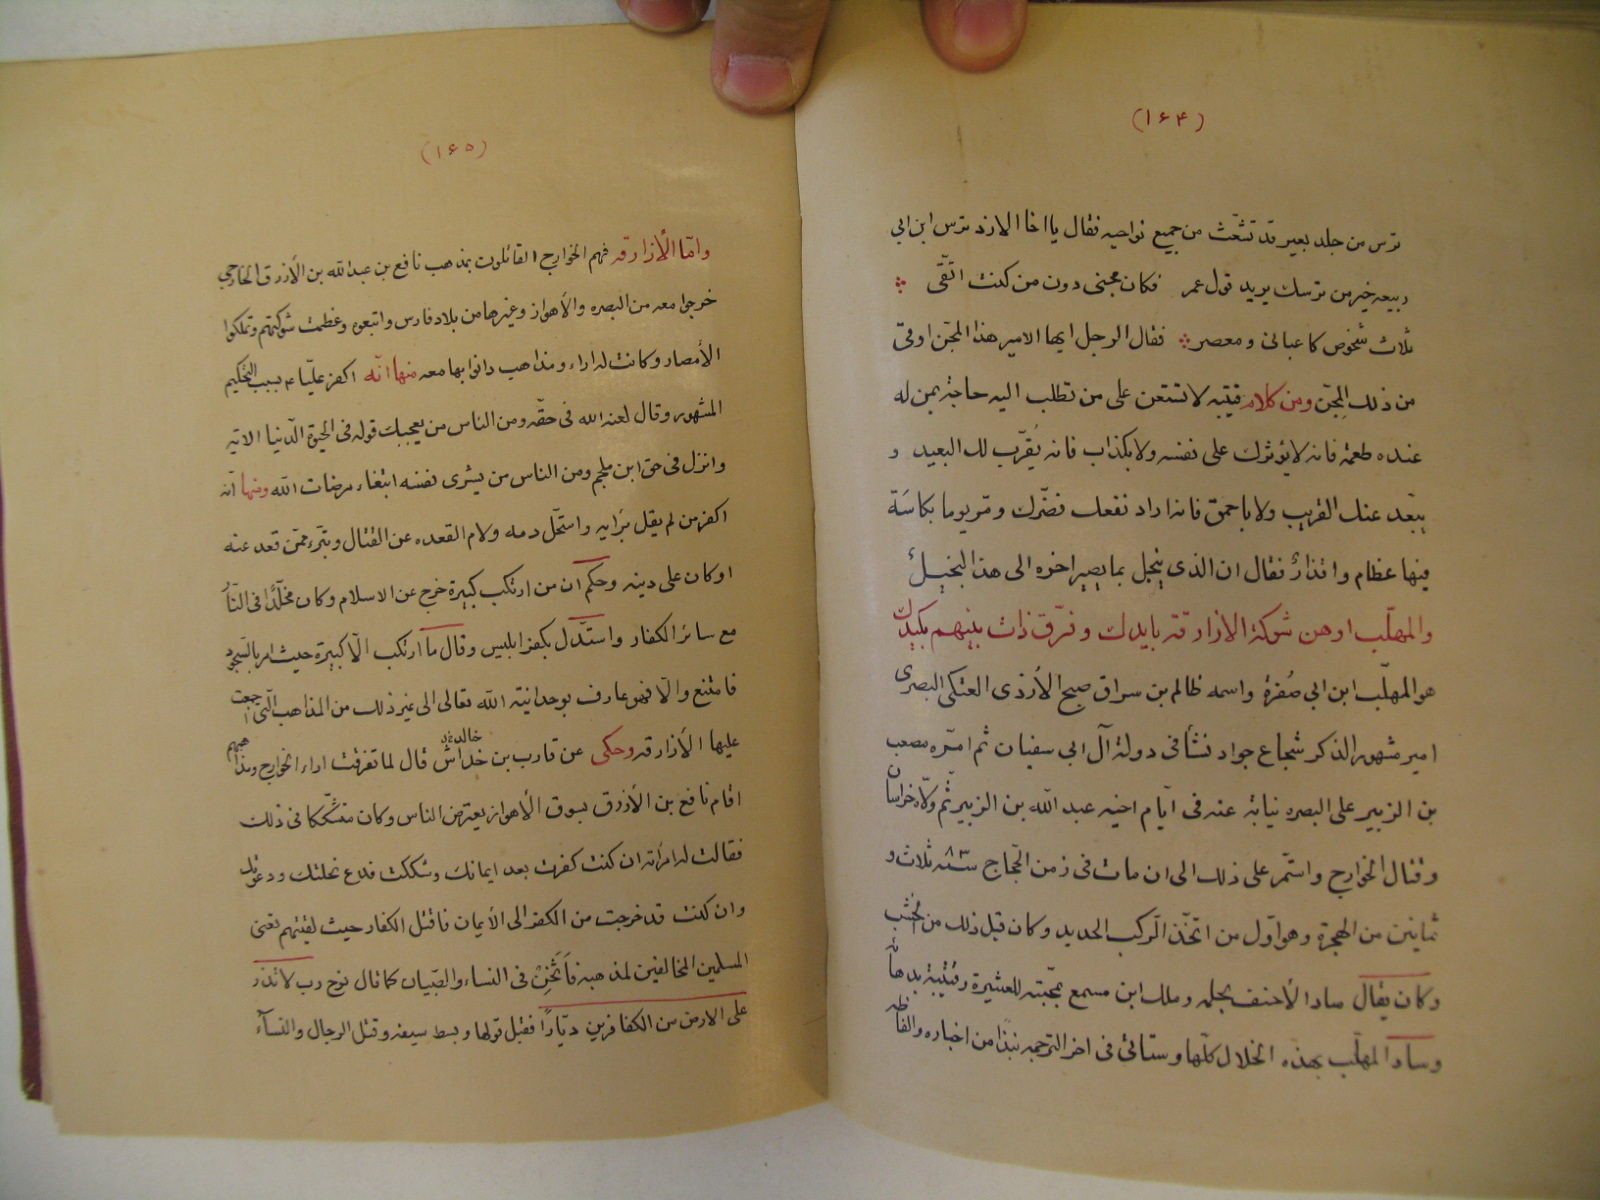 (۱۶۴)
ترس من جلد بعير قد تشعّثت من جميع نواحيه فقال يا اخا الازد ترس ابن ابى
ربيعه خير من ترسك يريد قول عمر فكان مجنى دون من كنت اتّقى
ثلاث شخوص كاعبانى ومعصر فقال الرجل ايها الامير هذا المجنّ اوفىّ
من ذلك المجّن ومن كلام قتيبه لا تستعن على من تطلب اليه حاجة بمن له
عنده طعمة فانه لا يؤثرك على نفسه ولا بكذاب فانه يُقرّب لك البعيد و
يبعّد عنك القريب ولا باحمق فانه اراد نفعك فضّرك ومرّ يوما بكاسَة
فيها عظام واقذارٌ فقال ان الذى يبخل بما يصير اخره الى هذا لبخيلٌ
والمهلّب اوهن شوكة الازارقه بايدك وفرّق ذات بينهم بكيدك
هو المهلّب ابن ابى صُفرة واسمه ظالم بن سراق صبح الأزدى العتكى البصرى
امير مشهور الذكر شجاع جواد نشأ فى دولة آل ابى سفيان ثم امّره مصعب
بن الزبير على البصره نيابة عنه فى ايّام اخيه عبد اللّه بن الزبير ثّم ولّاه خراسان
وقتال الخوارج واستمّر على ذلك الى ان مات فى زمن الحجاج سنه ۸۳ ثلاث و
ثمانين من الهجرة وهو اوّل من اتخّذ الركب الحديد وكان قبل ذلك من الخشب
وكان يقال ساد الأحنف بحلمه وملك ابن مسمع بمحبّته للعشيرة وقتيبة بدهائه
وساد المهلّب بهذه الخلال كلّها وستاتى فى اخر الترجمه نبذا من اخباره والفاظه
(۱۶۵)
وامّا الأزارقه فهم الخوارج القائلون بمذهب نافع بن عبد اللّه بن الأزرق الخارجى
خرجوا معه من البصره والأهواز وغيرها من بلاد فارس واتبعوه وعظمت شوكتهم وتملكوا
الأمصار وكانت له اراء ومذاهب دانوا بها معه منها انّه اكفر عليّا ع بسبب التحكيم
المشهور وقال لعنه الله فى حقّه ومن الناس من يعجبك قوله فى الحيوة الدّنيا الاية
وانزل فى حق ابن ملجم ومن الناس من يشرى نفسه ابتغاء مرضات اللّه ومنها انّه
اكفر من لم يقل برَايه واستحّل دمه ولام القعده عن القتال وتبرّء ممّن قعد عنه
او كان على دينه وحكم ان من ارتكب كبيرة خرج عن الاسلام وكان مخلّدًا فى النّار
مع سائر الكفار واستدّل بكفر ابليس وقال ما ارتكب الّا كبيرة حيث امر بالسجود
فامتنع والّا فهو عارف بوحدانيته اللّه تعالى الى غير ذلك من المذاهب الّتى اجتمعت
عليها الأزارقه وحكى عن قارب بن خداش خالد قال لما تفرقت اراء الخوارج ومذاهبهم
اقام نافع بن الأزرق بسوق الأهواز يعترض الناس وكان متشكّكا فى ذلك
فقالت له امرأته ان كنت كفرت بعد ايمانك وشككت فدع نحلتك ودعوتك
وان كنت قد خرجت من الكفر الى الأيمان فاقتل الكفار حيث لقيتهم تعنى
المسلمين المخالفين لمذهبه فَاَثْخِنْ فى النساء والصّبيان كما قال نوح رب لا تذر
على الارض من الكفافرين ديّارًا فقبل قولها وبسط سيفه وقتل الرجال والنسآء